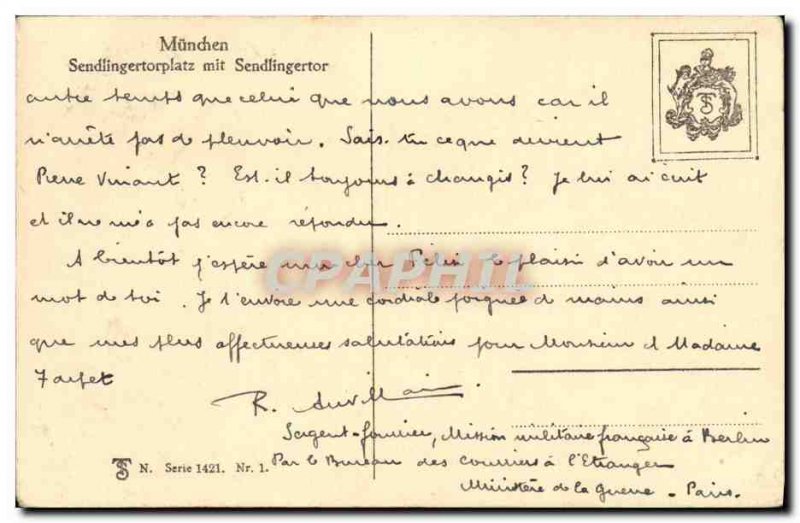 München
Sendlingertorplatz mit Sendlingertor
autre temps que celui que nous avons car il
n'arrête pas de pleuvoir. Sais-tu ce que devient
Pierre ? Est-il toujours à changis ? Je lui ai écrit
et il ne m'a pas encore répondu.
A bientôt j'espère mon cher Félix le plaisir d'avoir un
mot de toi. Je t'envoie une cordiale poignée de mains ainsi
que mes plus affectueuses salutations pour Monsieur et Madame
R.
Sergent-fourrier, Mission militaire française à Berlin
Par le Bureau des courriers à l'Etranger
Ministère de la Guerre - Paris.
TS N. Serie 1421. Nr. 1.
CPAPHIL
TS